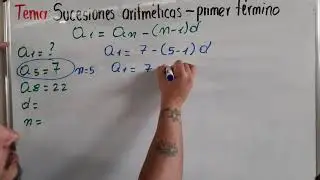 Tema: Sucesiones aritmeticas - primer término
a₁ = aₙ - (n-1)d
a₁ = ?
a₁ = 7 - (5-1) d
a₅ = 7 n=5
a₁ = 7 -
a₈ = 22
d =
n =